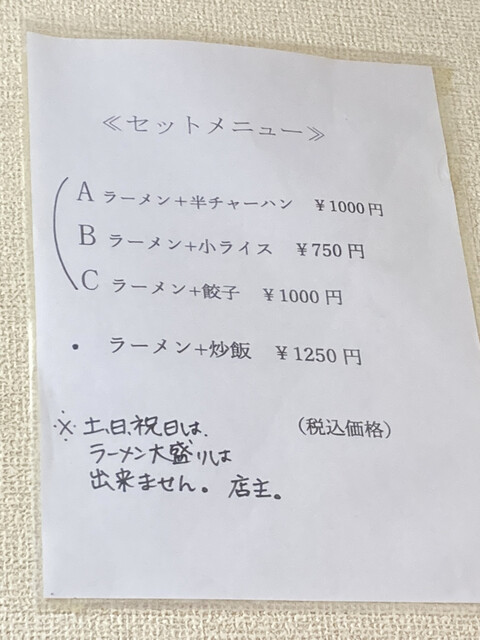 ≪セットメニュー≫
A ラーメン+半チャーハン ￥1000円
B ラーメン+小ライス ￥750円
C ラーメン+餃子 ￥1000円
・ ラーメン+炒飯 ￥1250円
(税込価格)
※ 土、日、祝日は、
ラーメン大盛りは
出来ません。 店主。